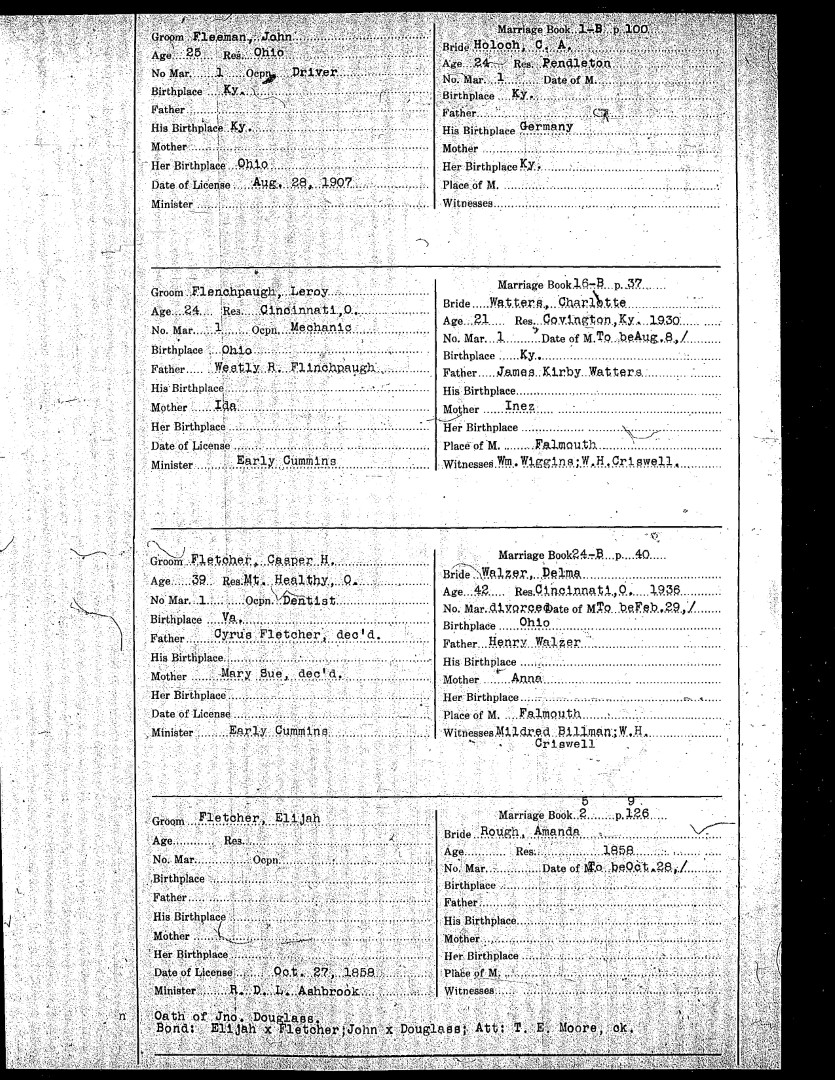 Groom Fleeman, John
Age 25 Res. Ohio
No Mar. 1 Ocpn. Driver
Birthplace Ky.
Father
His Birthplace Ky.
Mother
Her Birthplace Ohio
Date of License Aug. 28, 1907
Minister
Marriage Book 1-B p. 100
Bride Holoch, C. A.
Age 24 Res. Pendleton
No. Mar. 1 Date of M.
Birthplace Ky.
Father
His Birthplace Germany
Mother
Her Birthplace Ky.
Place of M.
Witnesses
Groom Flenchpaugh, Leroy
Age 24 Res. Cincinnati,O.
No. Mar. 1 Ocpn. Mechanic
Birthplace Ohio
Father Westly R. Flinchpaugh
His Birthplace
Mother Ida
Her Birthplace
Date of License
Minister Early Cummins
Marriage Book 16-B p. 37
Bride Watters, Charlotte
Age 21 Res. Covington,Ky. 1930
No. Mar. 1 Date of M. To beAug.8,/
Birthplace Ky.
Father James Kirby Watters
His Birthplace
Mother Inez
Her Birthplace
Place of M. Falmouth
Witnesses Wm.Wiggins;W.H.Criswell.
Groom Fletcher, Casper H.
Age 39 Res. Mt. Healthy, O.
No Mar. 1 Ocpn. Dentist
Birthplace Va.
Father Cyrus Fletcher, dec'd.
His Birthplace
Mother Mary Sue, dec'd.
Her Birthplace
Date of License
Minister Early Cummins
Marriage Book 24-B p. 40
Bride Walzer, Delma
Age 42 Res. Cincinnati,O. 1936
No. Mar. divorced Date of M. To beFeb.29,/
Birthplace Ohio
Father Henry Walzer
His Birthplace
Mother Anna
Her Birthplace
Place of M. Falmouth
Witnesses Mildred Billman;W.H.
Criswell
Groom Fletcher, Elijah
Age Res.
No. Mar. Ocpn.
Birthplace
Father
His Birthplace
Mother
Her Birthplace
Date of License Oct. 27, 1858
Minister R. D. L. Ashbrook
5 9
Marriage Book 2 p. 126
Bride Rough, Amanda
Age Res. 1858
No. Mar. Date of M. To beOct.28,/
Birthplace
Father
His Birthplace
Mother
Her Birthplace
Place of M.
Witnesses
n Oath of Jno. Douglass.
Bond: Elijah x Fletcher;John x Douglass; Att: T. E. Moore, ck.